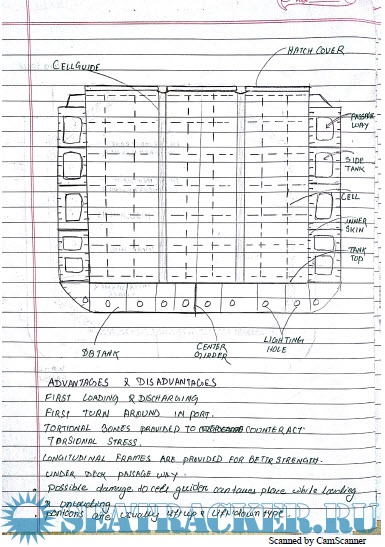 HATCH COVER
CELLGUIDE
PASSAGE
WAY
SIDE
TANK
CELL
INNER
SKIN
TANK
TOP
DB TANK
CENTER
GIRDER
LIGHTING
HOLE
ADVANTAGES & DISADVANTAGES
FIRST LOADING & DISCHARGING
FIRST TURN AROUND IN PORT.
TORTIONAL BOXES PROVIDED TO COUNTERACT
TORSIONAL STRESS.
LONGITUDINAL FRAMES ARE PROVIDED FOR BETTR STRENGTH.
UNDER DECK PASSAGE WAY.
• possible damage to cell guides can take place while loading
& unloading
• usually lift up & lift down type.
SEATRACKER.RU
Scanned by CamScanner